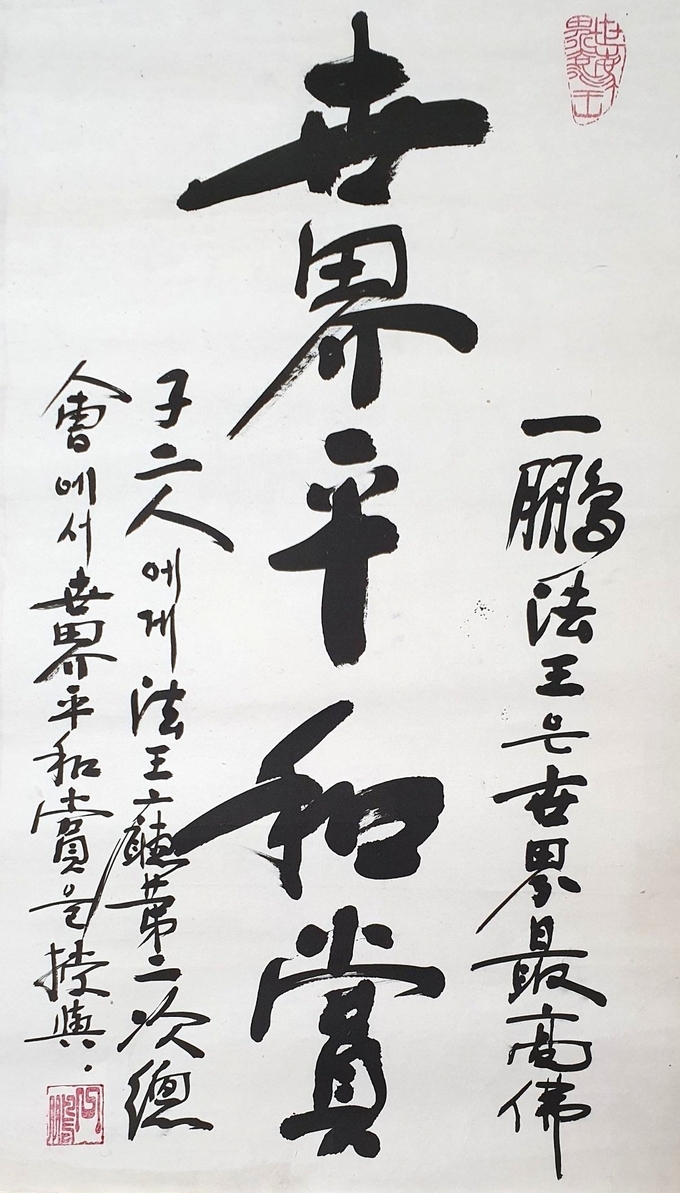 世界平和賞
一鵬法王은世界最高佛
子二人에게法王廳第二次總
會에서世界平和賞을授與.